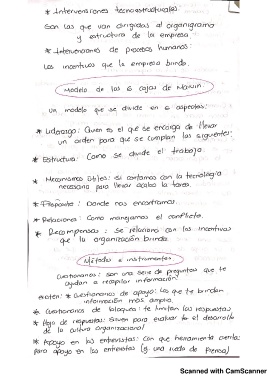 * Intervensiones tecnoestructurales:
Son las que van dirigidas al organigrama
y estructura de la empresa
* Intervensiones de procesos humanos:
Los incentivos que la empresa brinda.
Modelo de las 6 cajas de Marvin.
Un modelo que se divide en 6 aspectos:
* Liderazgo: Quien es el qué se encarga de llevar
un orden para qué se cumplan las siguientes:
* Estructura: Como se divide el trabajo.
* Mecanismos útiles: si contamos con la tecnología
necesaria para llevar acabo la tarea.
* Propósito: Donde nos encontramos.
* Relaciones: Como manejamos el conflicto.
* Recompensas: Se relaciona con los incentivos
que la organización brinda.
Métodos e instrumentos.
Cuestionarios: son una serie de preguntas que te
ayudan a recopilar información!
existen: * Cuestionarios de apoyo: Los que te brindan
información más amplia.
* Cuestionarios de bloqueo: te limitan las respuestas
* Hojas de respuestas: Sirven para evaluar el desarrollo
de la cultura organizacional
* Apoyo en las entrevistas: Con que herramienta cuentas
para apoyo en las entrevistas (ej. una rueda de prensa)
Scanned with CamScanner